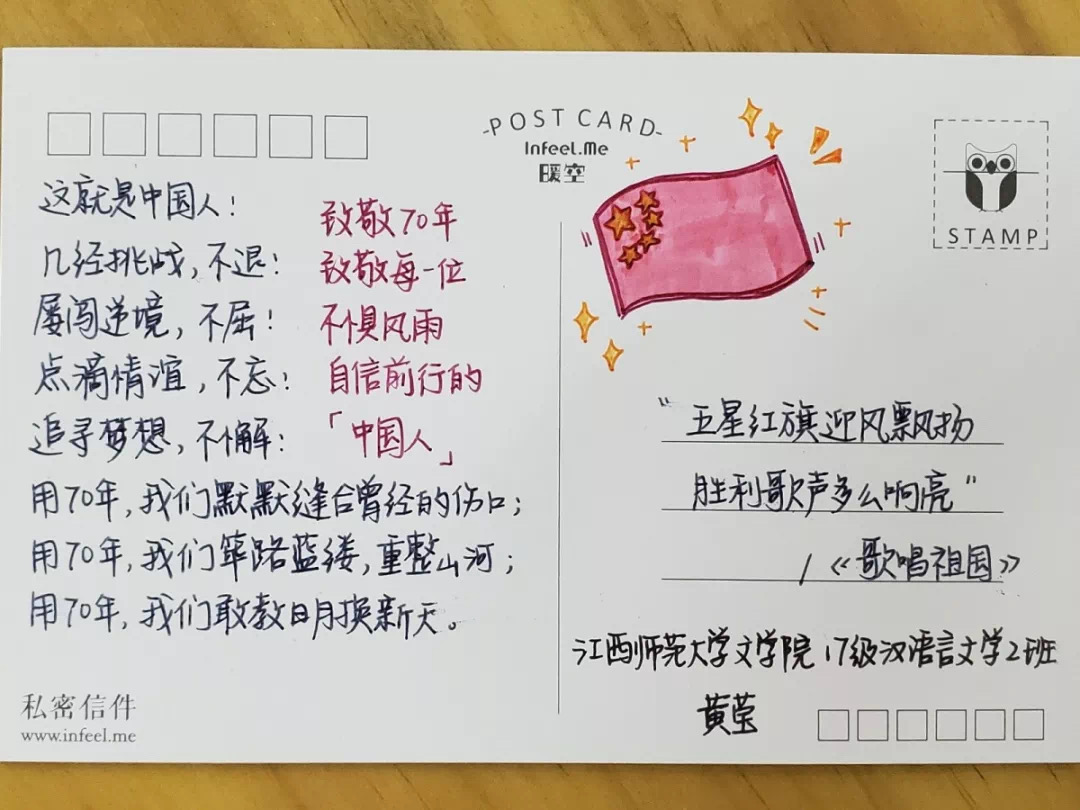 -POST CARD-
Infeel.Me
暖空
STAMP
这就是中国人！
几经挑战，不退！
屡闯逆境，不屈！
点滴情谊，不忘！
追寻梦想，不懈！
用70年，我们默默缝合曾经的伤口；
用70年，我们筚路蓝缕，重整山河；
用70年，我们敢教日月换新天。
致敬70年
致敬每一位
不惧风雨
自信前行的
「中国人」
“五星红旗迎风飘扬
胜利歌声多么响亮”
/《歌唱祖国》
江西师范大学文学院17级汉语言文学2班
黄莹
私密信件
www.infeel.me